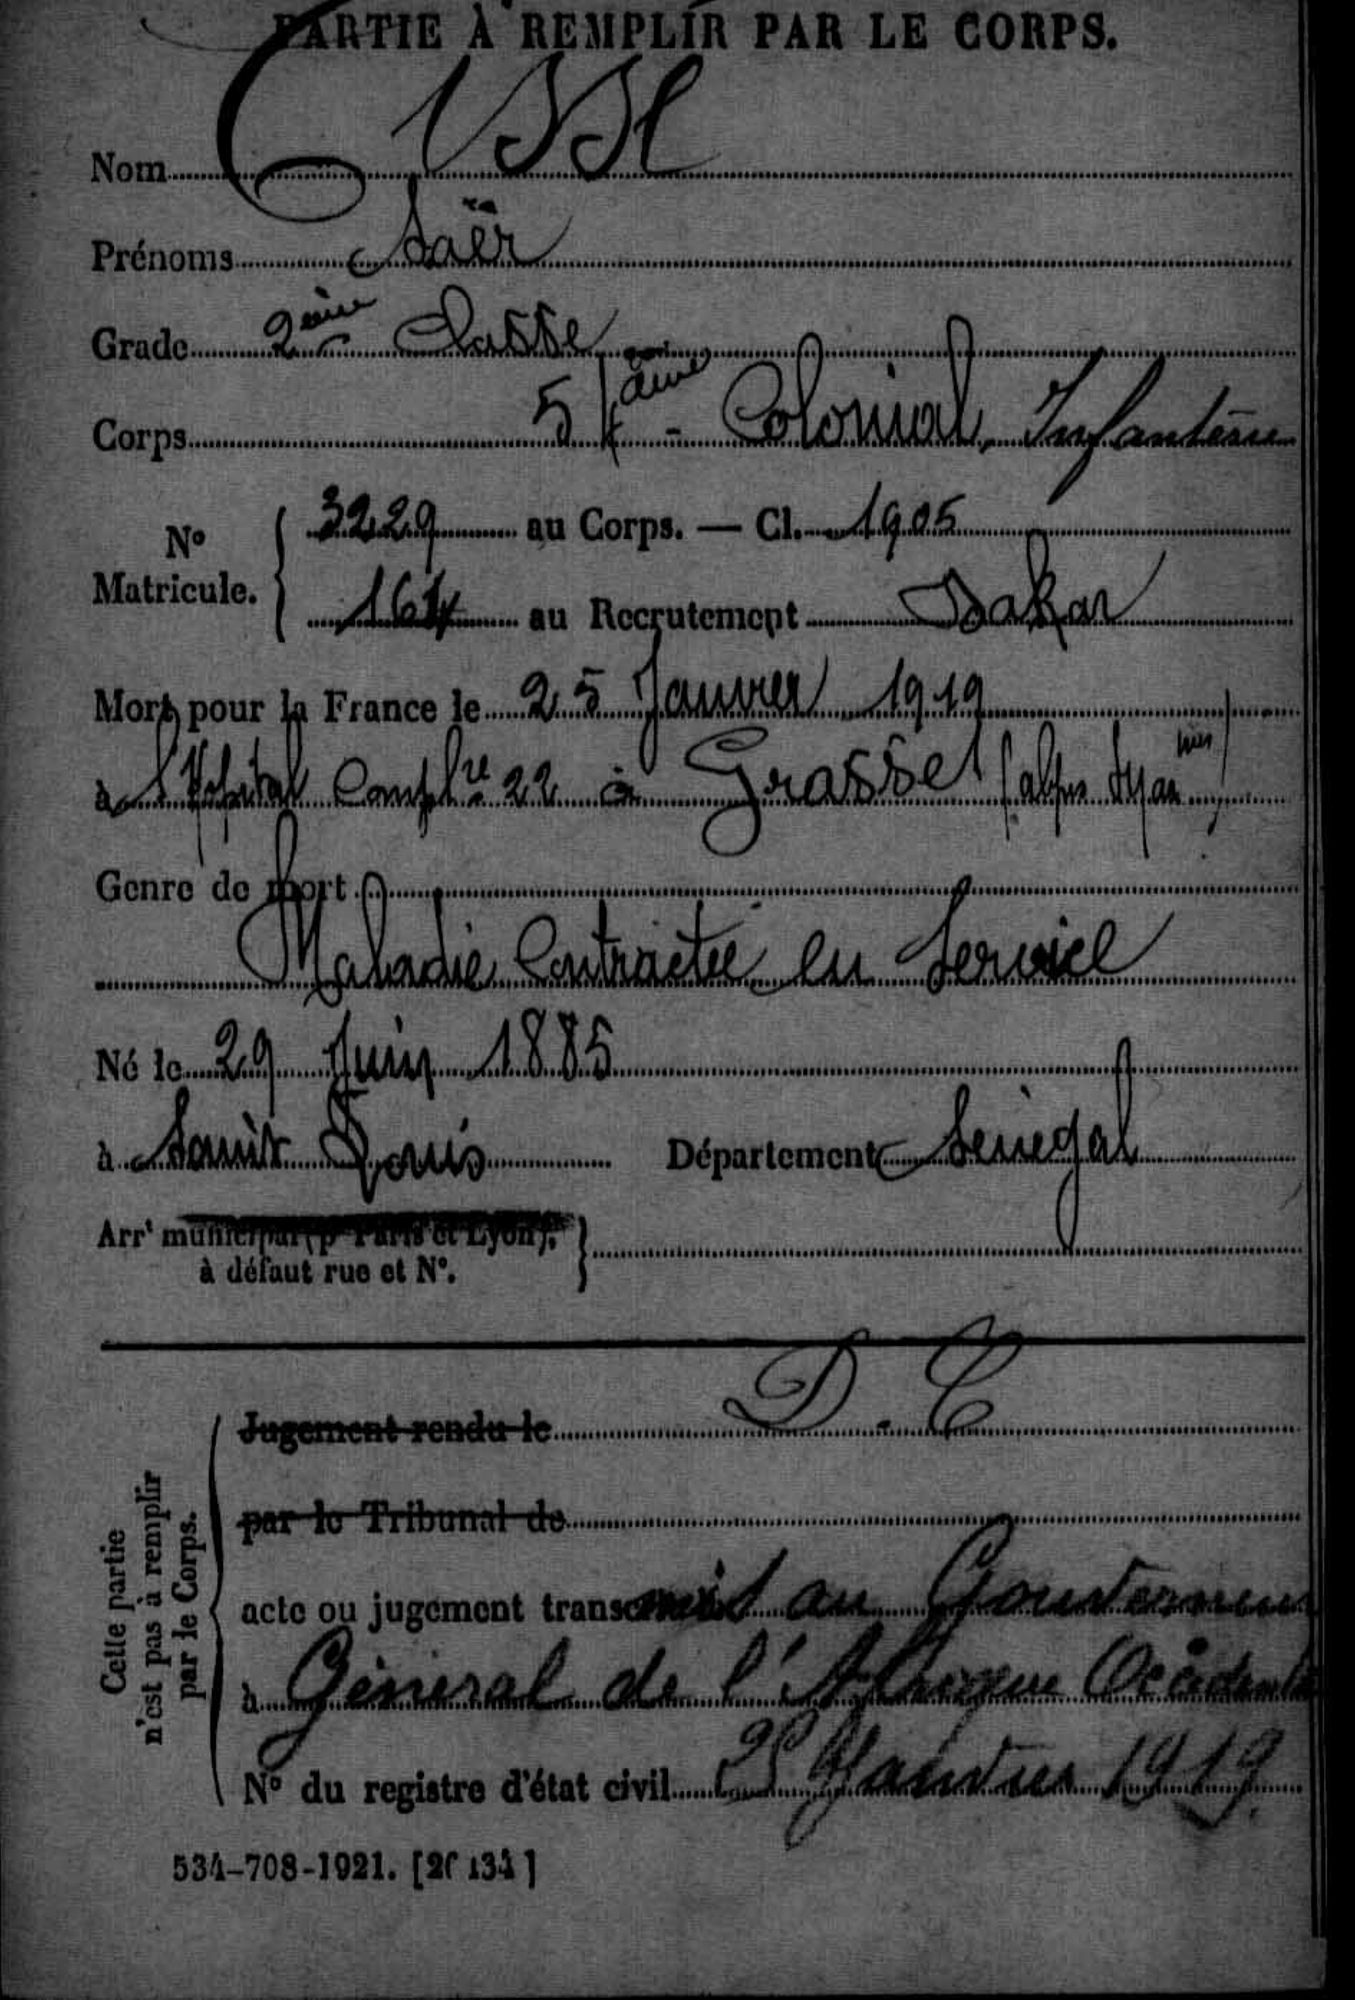 PARTIE À REMPLIR PAR LE CORPS.
Nom Cisse
Prénoms Saër
Grade 2ème Classe
Corps 54ème Colonial Infanterie
No Matricule. 3229 au Corps. — Cl. 1905
164 au Recrutement Dakar
Mort pour la France le 25 Janvier 1919
à l'Hôpital Complre 22 à Grasse (Alpes Mari mes)
Genre de mort
Maladie Contractée en Service
Né le 29 Juin 1885
à Saint Louis Département Sénégal
Arrt municipal (pr Paris et Lyon),
à défaut rue et No.
D. C
Jugement rendu le
par le Tribunal de
acte ou jugement transmis au Gouverneur
à Général de l'Afrique Occidentale
No du registre d'état civil 25 Janvier 1919.
Cette partie
n'est pas à remplir
par le Corps.
534-708-1921. [26134]